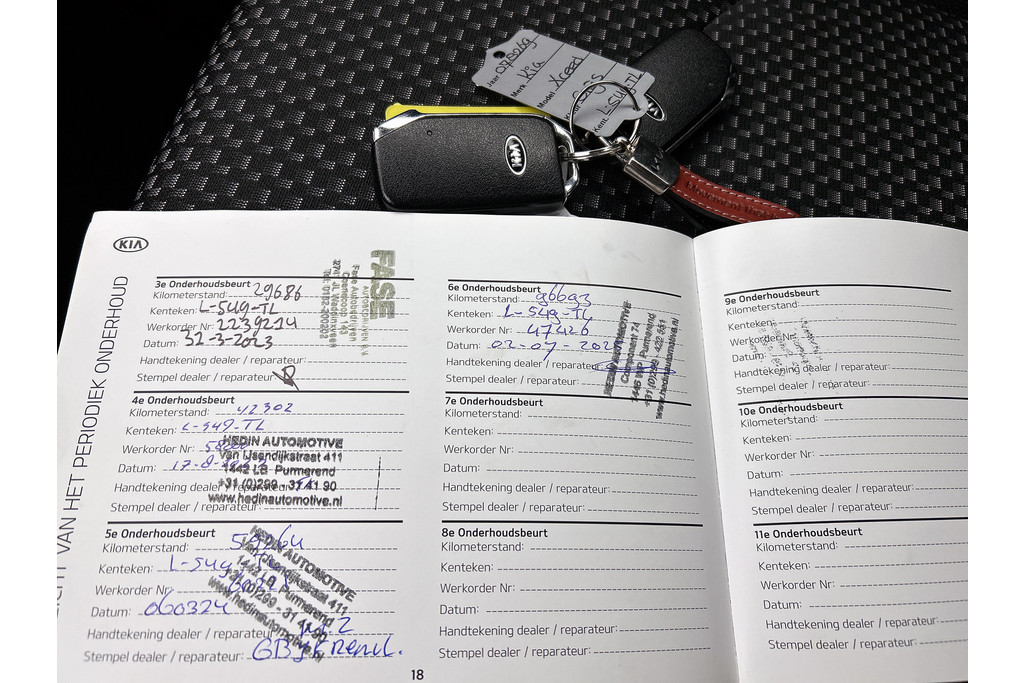 Jaar:
Merk Kia
Model Xceed
Kent. L-549-TL
KIA
KIA
OVERZICHT VAN HET PERIODIEK ONDERHOUD
3e Onderhoudsbeurt
Kilometerstand: 29686
Kenteken: L-549-TL
Werkorder Nr: 2239214
Datum: 31-3-2023
Handtekening dealer / reparateur:
Stempel dealer / reparateur:
FASE
4e Onderhoudsbeurt
Kilometerstand: 42302
Kenteken: L-549-TL
Werkorder Nr:
Datum: 17-8-
Handtekening dealer / reparateur:
Stempel dealer / reparateur:
HEDIN AUTOMOTIVE
Van IJsendijkstraat 411
1442 LB Purmerend
+31 (0)299 - 31 41 90
www.hedinautomotive.nl
5e Onderhoudsbeurt
Kilometerstand:
Kenteken: L-549-TL
Werkorder Nr:
Datum: 060324
Handtekening dealer / reparateur:
Stempel dealer / reparateur:
HEDIN AUTOMOTIVE
Van IJsendijkstraat 411
1442 LB Purmerend
+31 (0)299 - 31 41 90
www.hedinautomotive.nl
18
6e Onderhoudsbeurt
Kilometerstand: 96693
Kenteken: L-549-TL
Werkorder Nr: 47426
Datum: 02-07-202
Handtekening dealer / reparateur:
Stempel dealer / reparateur:
HEDIN AUTOMOTIVE
Component 74
1446 WP Purmerend
www.hedinautomotive.nl
7e Onderhoudsbeurt
Kilometerstand:
Kenteken:
Werkorder Nr:
Datum:
Handtekening dealer / reparateur:
Stempel dealer / reparateur:
8e Onderhoudsbeurt
Kilometerstand:
Kenteken:
Werkorder Nr:
Datum:
Handtekening dealer / reparateur:
Stempel dealer / reparateur:
9e Onderhoudsbeurt
Kilometerstand:
Kenteken:
Werkorder Nr:
Datum:
Handtekening dealer / reparateur:
Stempel dealer / reparateur:
10e Onderhoudsbeurt
Kilometerstand:
Kenteken:
Werkorder Nr:
Datum:
Handtekening dealer / reparateur:
Stempel dealer / reparateur:
11e Onderhoudsbeurt
Kilometerstand:
Kenteken:
Werkorder Nr:
Datum:
Handtekening dealer / reparateur:
Stempel dealer / reparateur: